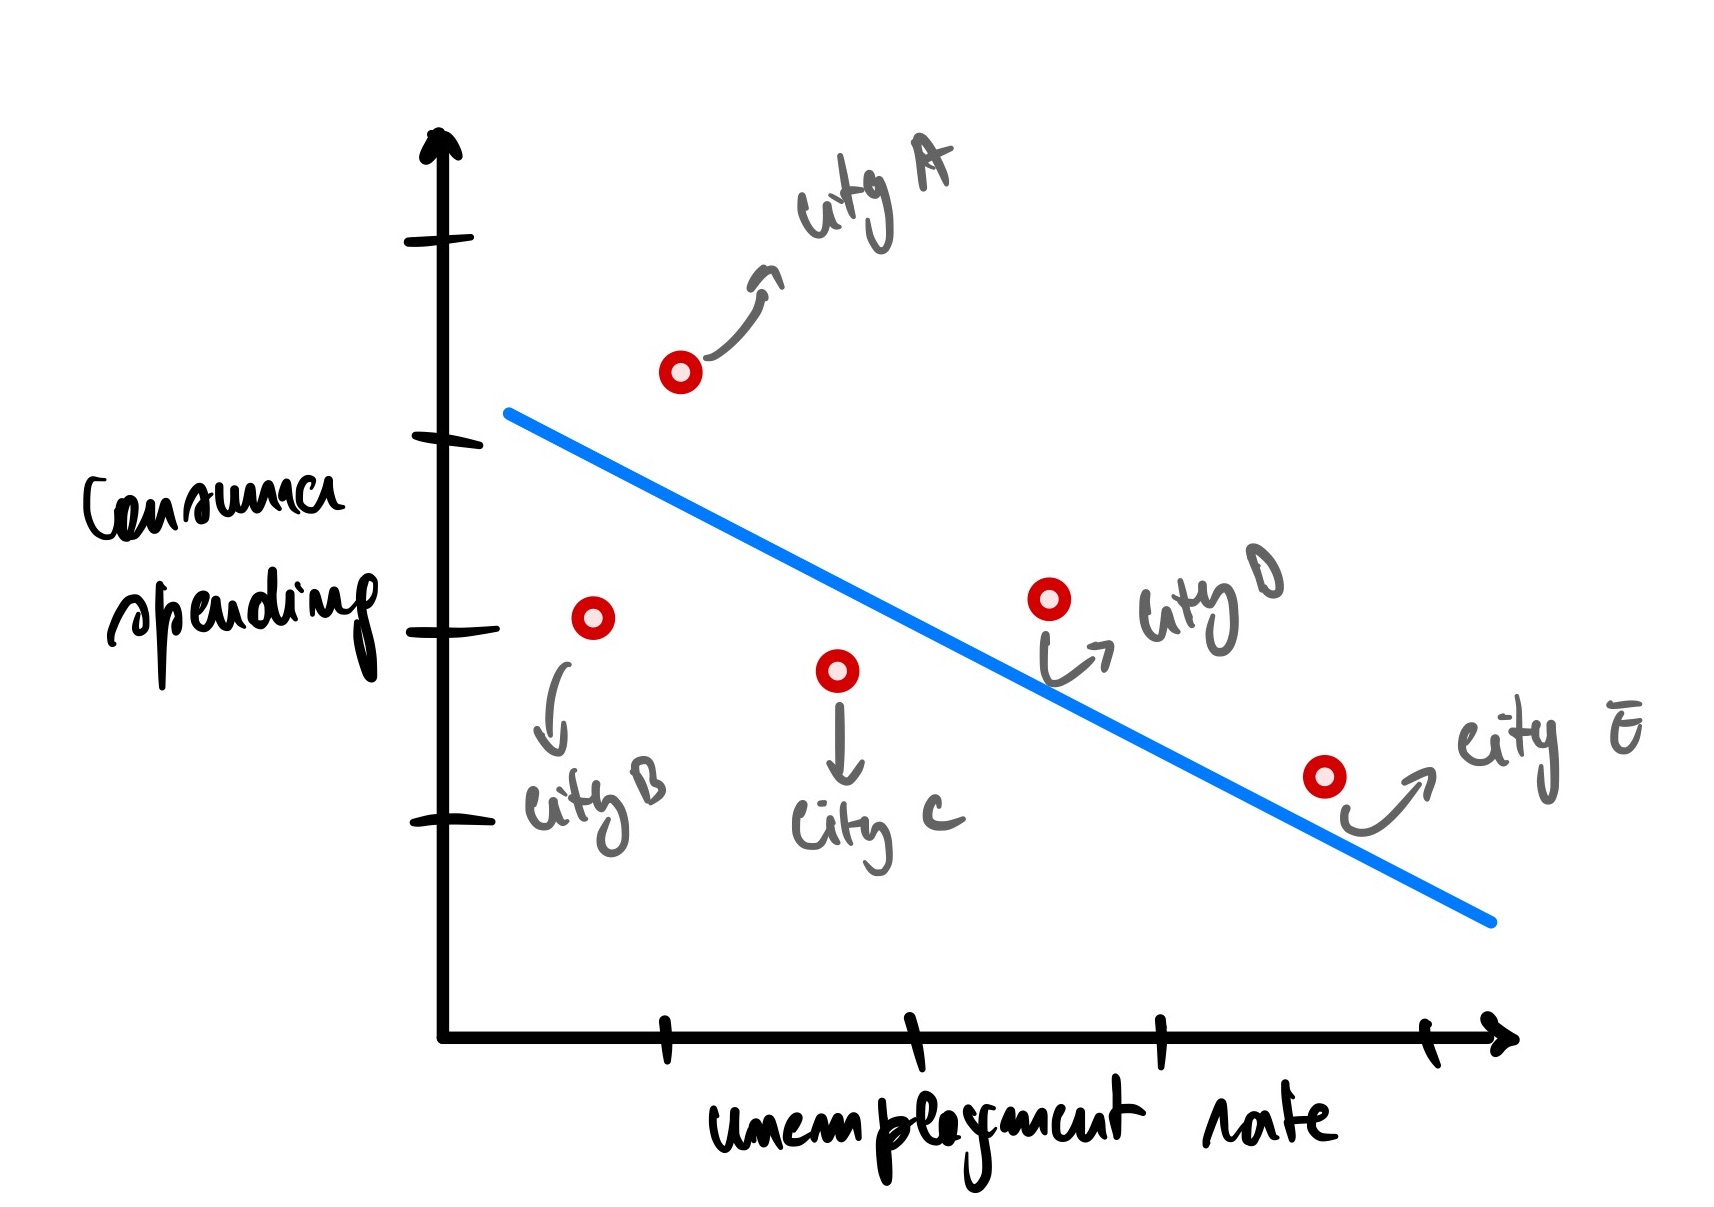 city A
Consumer
spending
city D
city E
city B
city C
unemployment rate